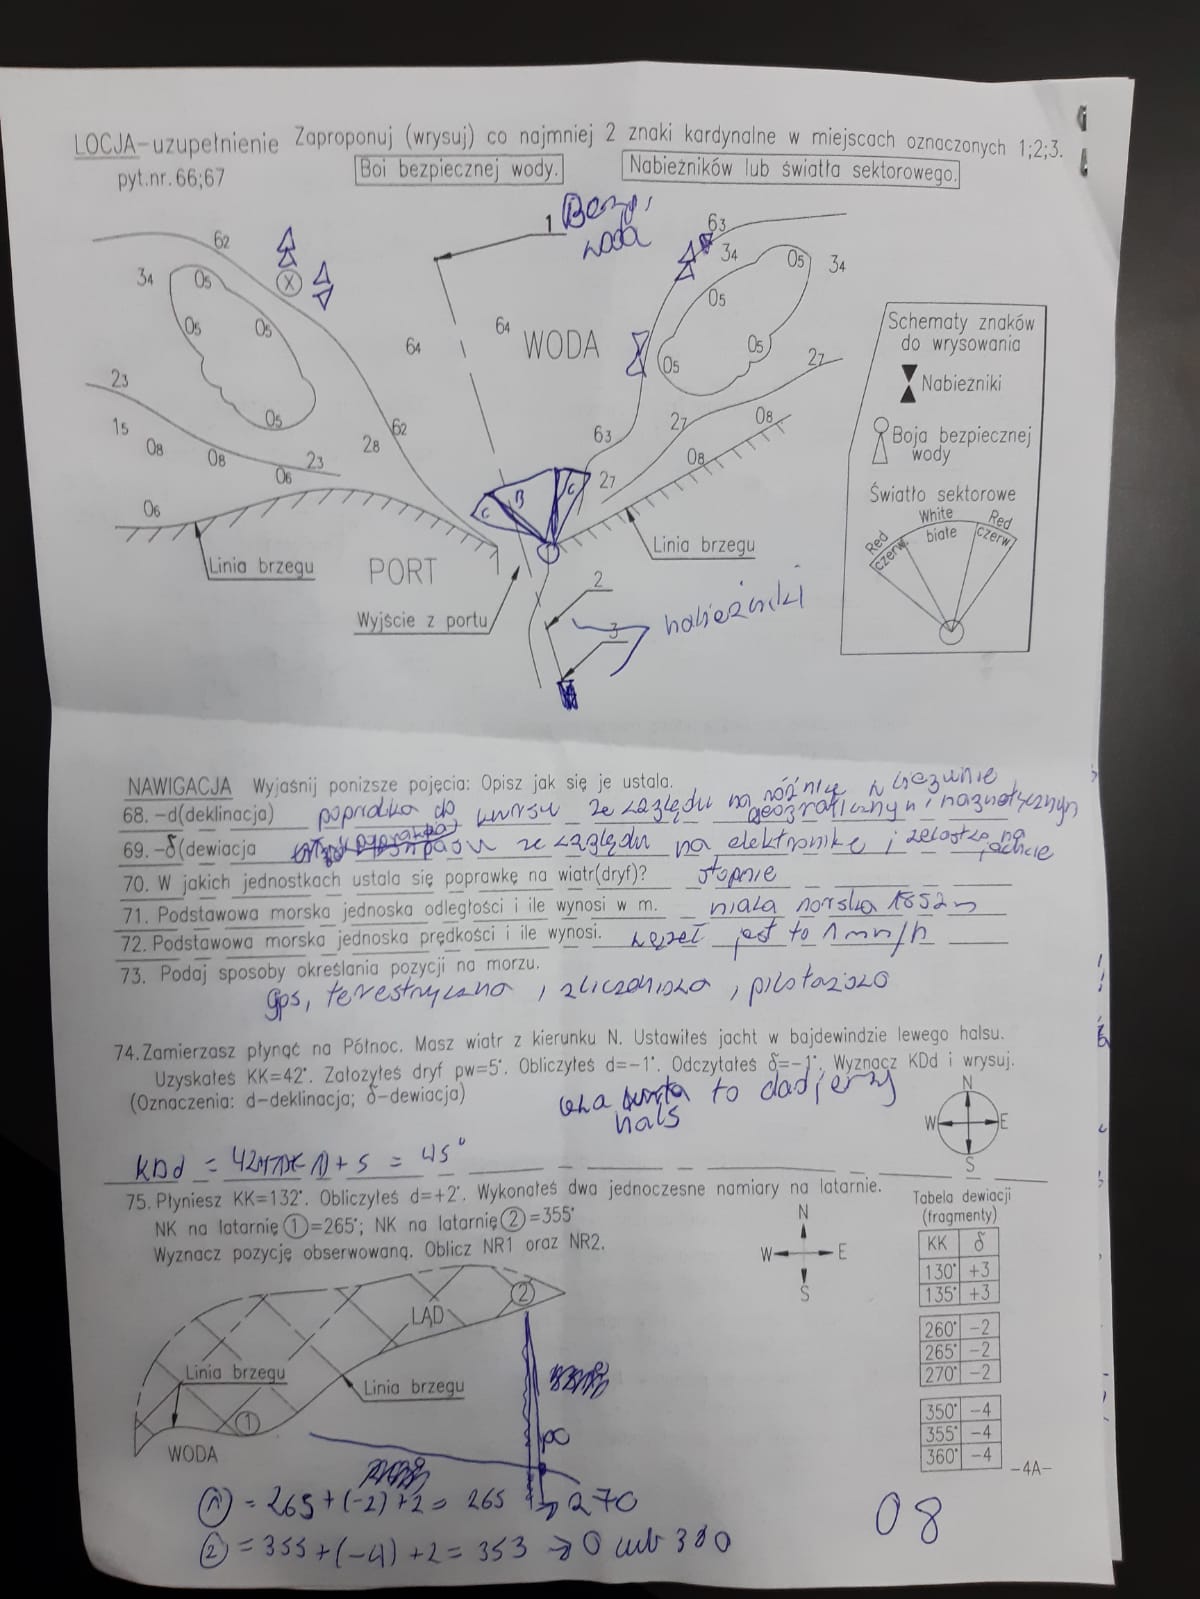 LOCJA-uzupełnienie Zaproponuj (wrysuj) co najmniej 2 znaki kardynalne w miejscach oznaczonych 1;2;3.
pyt.nr.66;67 Boi bezpiecznej wody. Nabieżników lub światła sektorowego.
1 Bezp.
woda
62
63
34
34
05
05
34
X
05
05
05
64
64
WODA
05
05
27
23
05
62
15
08
08
28
23
06
63
27
08
08
27
06
C
B
C
Linia brzegu
PORT
Linia brzegu
Wyjście z portu
2
3
nabieżniki
Schematy znaków
do wrysowania
Nabieżniki
Boja bezpiecznej
wody
Światło sektorowe
White
Red
Red
białe
czerw.
czerw.
NAWIGACJA Wyjaśnij poniższe pojęcia: Opisz jak się je ustala.
68. -d(deklinacja) poprawka do kursu ze względu na różnicę w biegunie
geograficznym i magnetycznym
69. -δ(dewiacja ze względu na elektronikę i żelastwo na
jachcie
70. W jakich jednostkach ustala się poprawkę na wiatr(dryf)? stopnie
71. Podstawowa morska jednoska odległości i ile wynosi w m. mila morska 1852m
72. Podstawowa morska jednoska prędkości i ile wynosi. węzeł jest to 1 mm/h
73. Podaj sposoby określania pozycji na morzu.
gps, terestryczna, zliczeniowa, pilotażowa
74. Zamierzasz płynąć na Północ. Masz wiatr z kierunku N. Ustawiłeś jacht w bajdewindzie lewego halsu.
Uzyskałeś KK=42°. Założyłeś dryf pw=5°. Obliczyłeś d=-1°. Odczytałeś δ=-1°. Wyznacz KDd i wrysuj.
(Oznaczenia: d-deklinacja; δ-dewiacja)
to dodajemy
hals
N
W
E
S
KDd = + 5 = 45°
75. Płyniesz KK=132°. Obliczyłeś d=+2°. Wykonałeś dwa jednoczesne namiary na latarnie.
NK na latarnię 1=265°; NK na latarnię 2=355°
Wyznacz pozycję obserwowaną. Oblicz NR1 oraz NR2.
N
W
E
S
Tabela dewiacji
(fragmenty)
KK δ
130° +3
135° +3
260° -2
265° -2
270° -2
350° -4
355° -4
360° -4
2
LĄD
Linia brzegu
Linia brzegu
1
WODA
PO
-4A-
1 = 265+(-2)+2= 265 → 270
2 = 355+(-4)+2= 353 → 0 lub 360
08